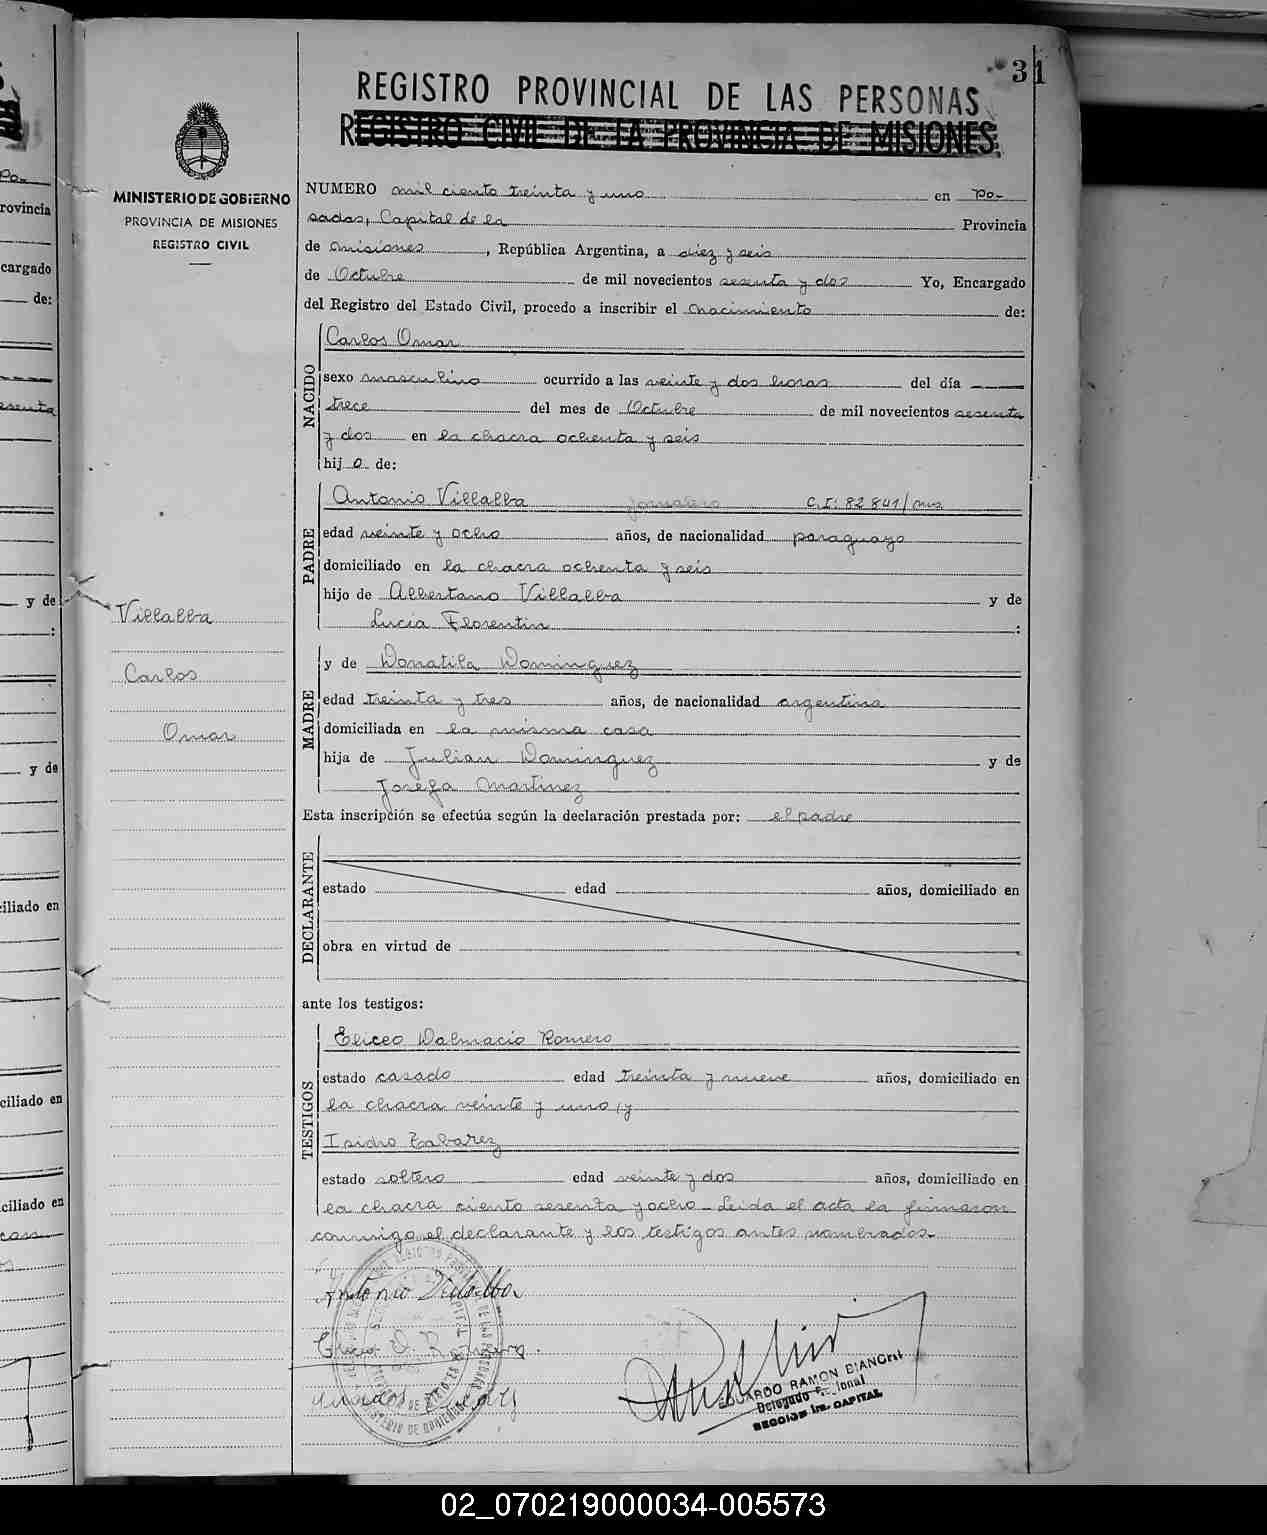 31
REGISTRO PROVINCIAL DE LAS PERSONAS
REGISTRO CIVIL DE LA PROVINCIA DE MISIONES
MINISTERIO DE GOBIERNO
PROVINCIA DE MISIONES
REGISTRO CIVIL
NUMERO mil ciento treinta y uno en Po-
sadas, Capital de la Provincia
de Misiones, República Argentina, a diez y seis
de Octubre de mil novecientos sesenta y dos Yo, Encargado
del Registro del Estado Civil, procedo a inscribir el nacimiento de:
NACIDO
Carlos Omar
sexo masculino ocurrido a las veinte y dos horas del día
trece del mes de Octubre de mil novecientos sesenta
y dos en la chacra ochenta y seis
hijo de:
PADRE
Antonio Villalba jornalero C.I: 82841/mis
edad veinte y ocho años, de nacionalidad paraguayo
domiciliado en la chacra ochenta y seis
hijo de Albertano Villalba y de
Lucia Florentin :
Villalba
Carlos
Omar
MADRE
y de Donatila Dominguez
edad treinta y tres años, de nacionalidad argentina
domiciliada en la misma casa
hija de Julian Dominguez y de
Josefa Martinez
Esta inscripción se efectúa según la declaración prestada por: el padre
DECLARANTE
estado edad años, domiciliado en
obra en virtud de
ante los testigos:
TESTIGOS
Eliceo Dalmacio Romero
estado casado edad treinta y nueve años, domiciliado en
la chacra veinte y uno, y
Isidro Tabarez
estado soltero edad veinte y dos años, domiciliado en
la chacra ciento sesenta y ocho - Leida el acta la firmaron
conmigo el declarante y los testigos antes nombrados.
Antonio Villalba
Eliceo D. Romero
EDUARDO RAMON BIANCHI
Delegado
SECCION 1ra. CAPITAL
02_070219000034-005573